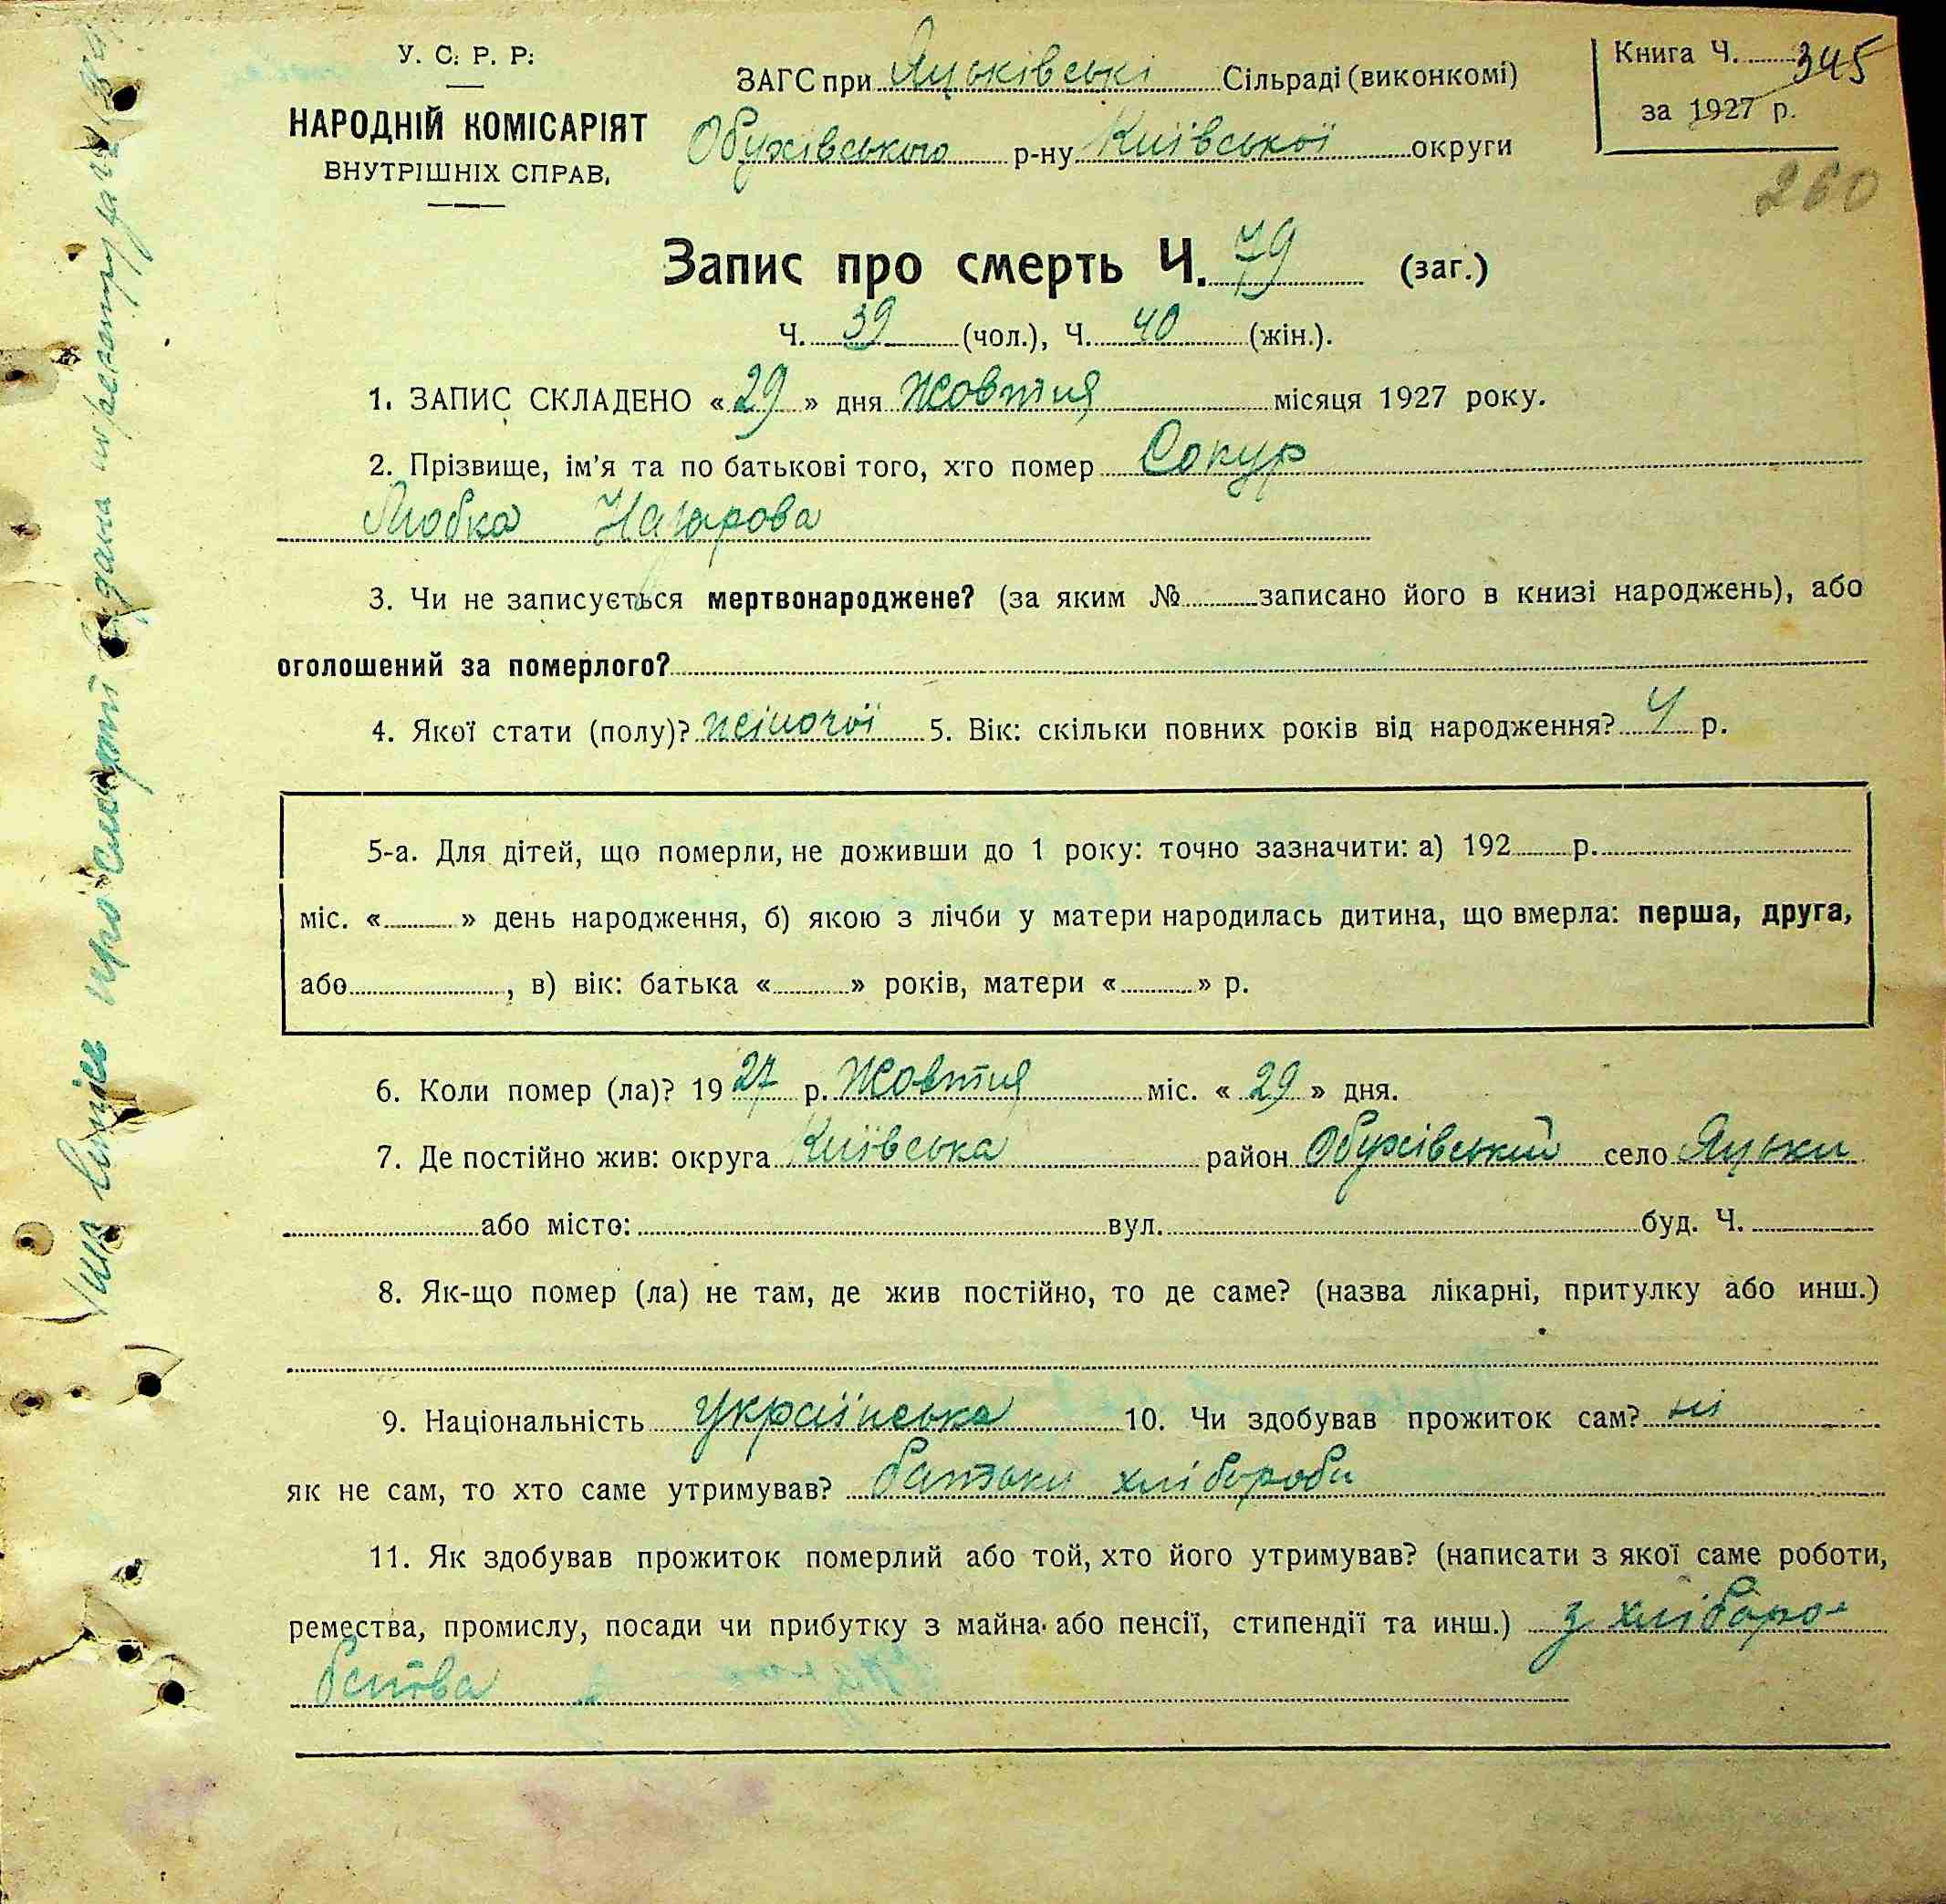 У. С. Р. Р.
НАРОДНІЙ КОМІСАРІЯТ
ВНУТРІШНІХ СПРАВ.
ЗАГС при Яцьківські Сільраді (виконкомі)
Обухівського р-ну Київської округи
Книга Ч. 345
за 1927 р.
260
Запис про смерть Ч. 79 (заг.)
Ч. 39 (чол.), Ч. 40 (жін.).
1. ЗАПИС СКЛАДЕНО « 29 » дня Жовтня місяця 1927 року.
2. Прізвище, ім'я та по батькові того, хто помер Сокур
Любка Назарова
3. Чи не записується мертвонароджене? (за яким № записано його в книзі народжень), або
оголошений за померлого?
4. Якої стати (полу)? жіночої 5. Вік: скільки повних років від народження? 4 р.
5-а. Для дітей, що померли, не доживши до 1 року: точно зазначити: а) 192 р.
міс. « » день народження, б) якою з лічби у матери народилась дитина, що вмерла: перша, друга,
або , в) вік: батька « » років, матери « » р.
6. Коли помер (ла)? 19 27 р. Жовтня міс. « 29 » дня.
7. Де постійно жив: округа Київська район Обухівський село Яцьки
або місто: вул. буд. Ч.
8. Як-що помер (ла) не там, де жив постійно, то де саме? (назва лікарні, притулку або инш.)
9. Національність українська 10. Чи здобував прожиток сам? ні
як не сам, то хто саме утримував? батьки хлібороби
11. Як здобував прожиток померлий або той, хто його утримував? (написати з якої саме роботи,
ремества, промислу, посади чи прибутку з майна або пенсії, стипендії та инш.) з хліборо-
бства
випіс про смерть